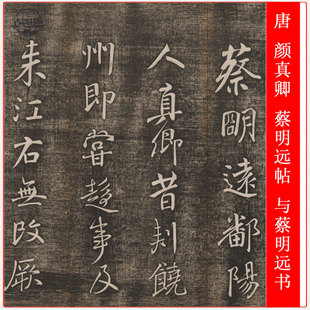 唐 颜真卿 蔡明远帖 与蔡明远书
蔡明遠鄱陽
人真卿昔刺饒
州即嘗趨事及
来江右無改厥